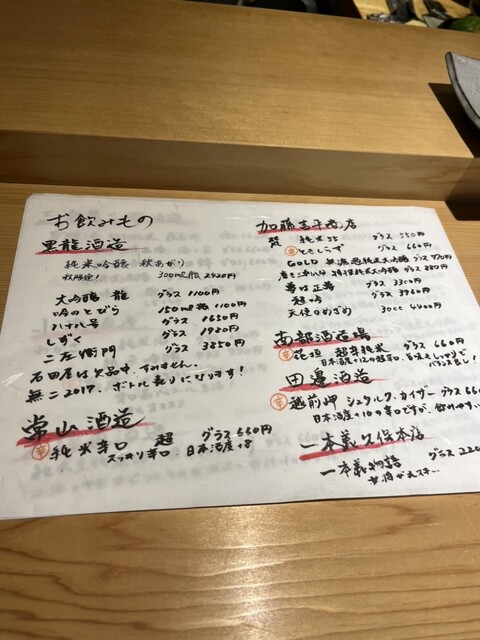 お飲みもの
黒龍酒造
純米吟醸 秋あがり
秋限定! 300ml瓶 2420円
大吟醸 龍 グラス 1100円
吟のとびら 150ml瓶 1100円
八十八号 グラス 1650円
しずく グラス 1980円
二左衛門 グラス 3850円
石田屋は欠品中、すみません。
無二2017、ボトル売りになります!
常山酒造
辛 純米辛口 超 グラス 660円
スッキリ辛口 日本酒度+8
加藤吉平商店
梵 純米55 グラス 550円
辛 ときしらず グラス 660円
GOLD 無濾過純米大吟醸 グラス 770円
特撰純米大吟醸 グラス 880円
夢は正夢 グラス 3300円
超吟 グラス 3960円
天使のめざめ 30cc 4400円
南部酒造場
辛 花垣 超辛純米 グラス 660円
日本酒度+12の超辛口、旨味もしっかりで
バランス良し!
田邊酒造
辛 越前岬 シュタルク.カイザー グラス 66
日本酒度+10の辛口ですが、飲みやすい
一本義久保本店
一本義物語 グラス 220